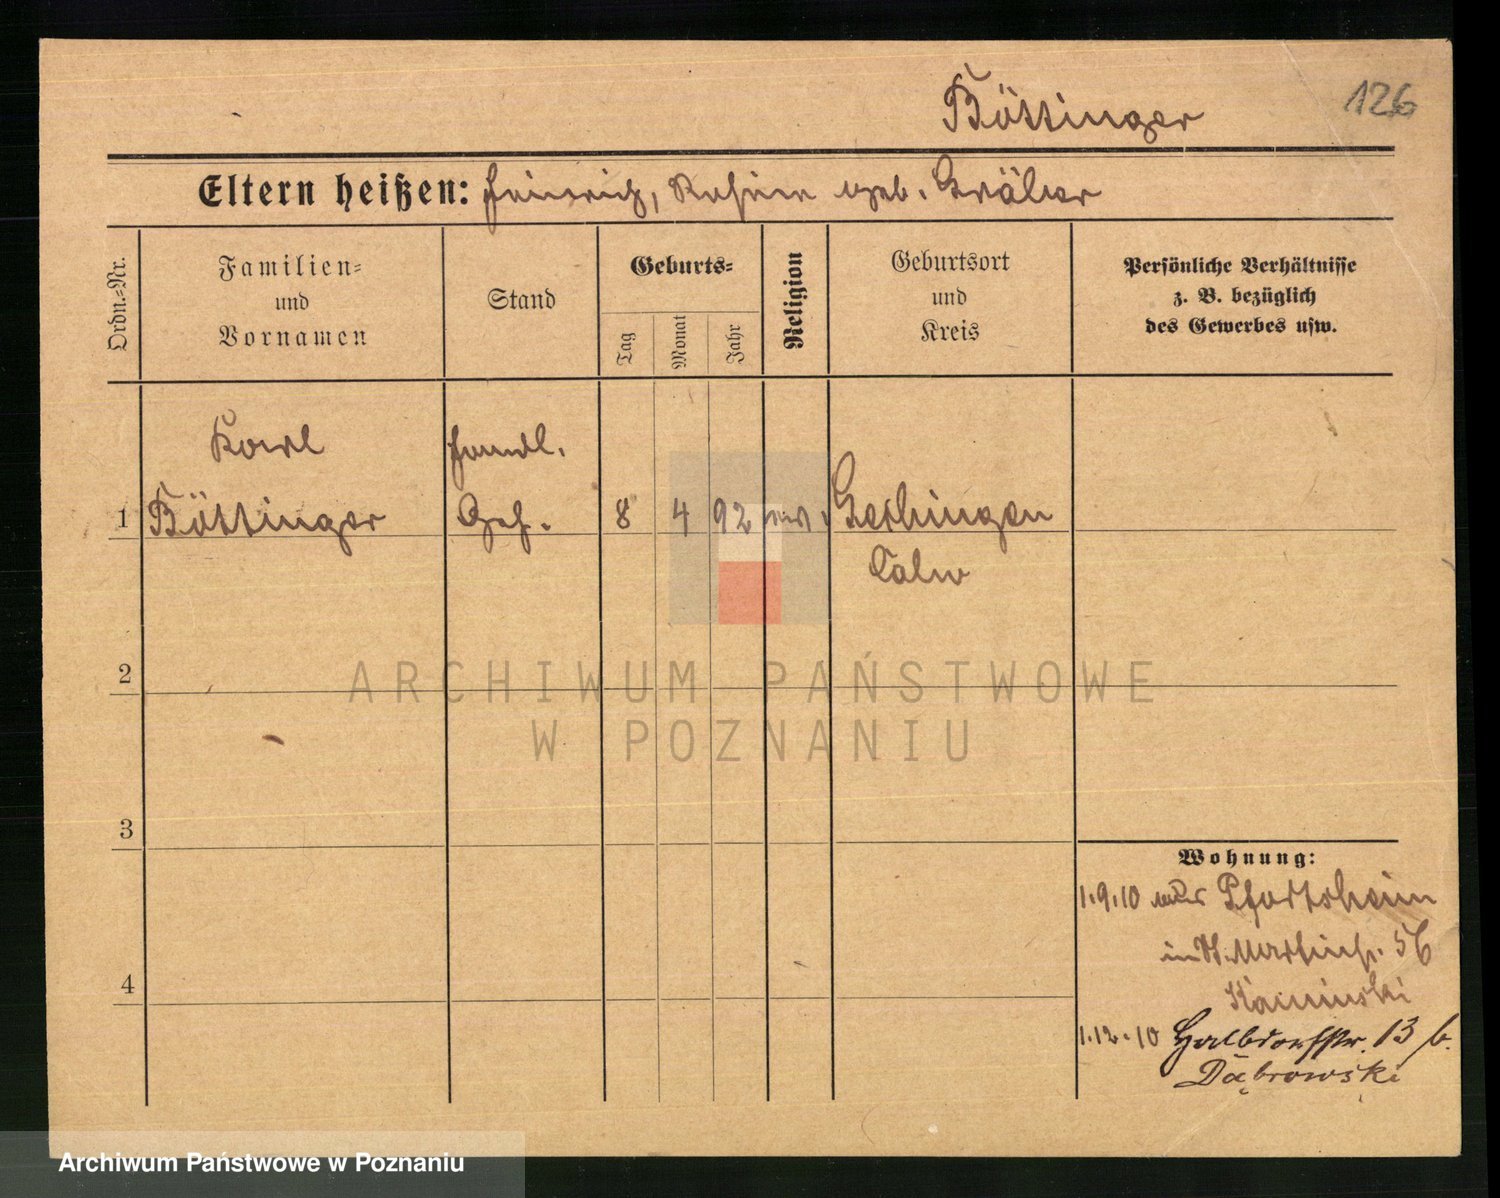 126
Böttinger
Eltern heißen: Heinrich, Rosine geb. Gräber
Ordn.-Nr.
Familien-
und
Vornamen
Stand
Geburts-
Tag
Monat
Jahr
Religion
Geburtsort
und
Kreis
Persönliche Verhältnisse
z. B. bezüglich
des Gewerbes usw.
Karl Handl.
1 Böttinger Geh. 8 4 92 ev. Gechingen
Calw
2
3
4
Wohnung:
1.9.10 aus Pforzheim
in St. Martinstr. 56
Kaminski
1.12.10 Halbdorfstr. 13 b.
Dąbrowski
ARCHIWUM PAŃSTWOWE
W POZNANIU
Archiwum Państwowe w Poznaniu